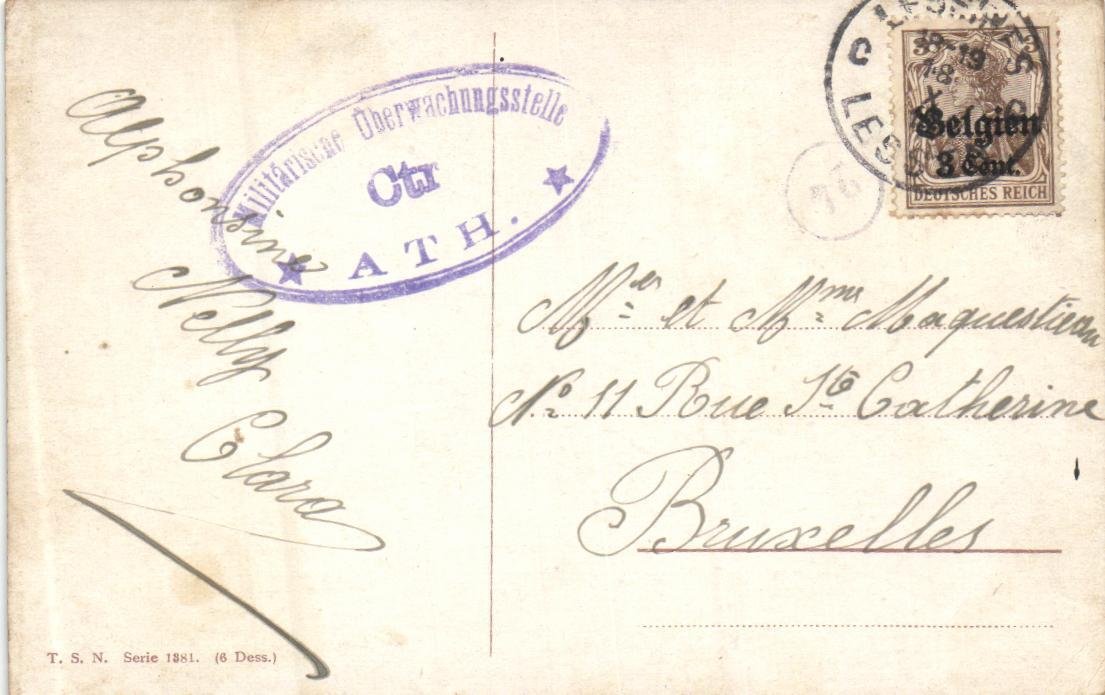 Alphonsine
Nelly
Clara
Militärische Überwachungsstelle
Ctr
ATH.
LESSINES
18-19
LESS
3 3
Belgien
3 Cent.
DEUTSCHES REICH
Mr et Mme Maquestiau
No 11 Rue Ste Catherine
Bruxelles
T. S. N. Serie 1381. (6 Dess.)